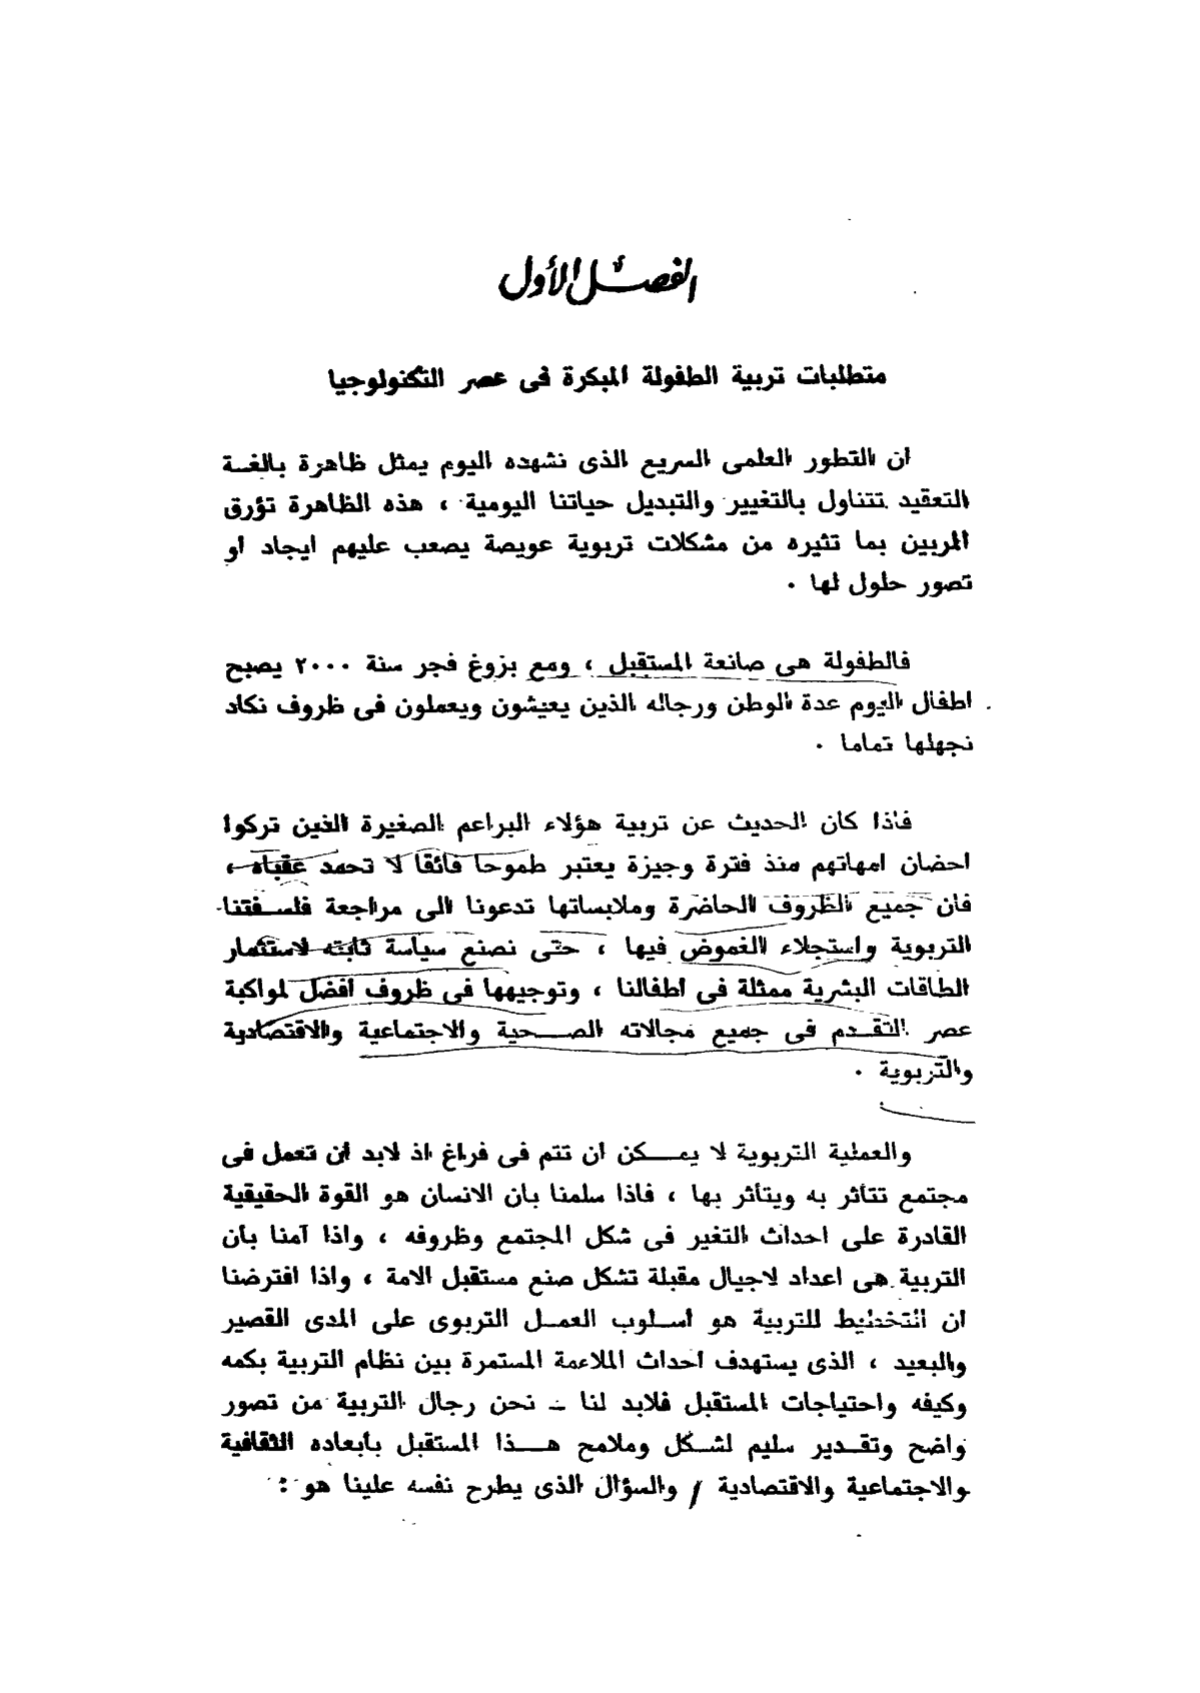 الفصل الأول
متطلبات تربية الطفولة المبكرة فى عصر التكنولوجيا
ان التطور العلمى السريع الذى نشهده اليوم يمثل ظاهرة بالغة
التعقيد تتناول بالتغيير والتبديل حياتنا اليومية ، هذه الظاهرة تؤرق
المربين بما تثيره من مشكلات تربوية عويصة يصعب عليهم ايجاد او
تصور حلول لها .
فالطفولة هى صانعة المستقبل ، ومع بزوغ فجر سنة ٢٠٠٠ يصبح
اطفال اليوم عدة الوطن ورجاله الذين يعيشون ويعملون فى ظروف نكاد
نجهلها تماما .
فاذا كان الحديث عن تربية هؤلاء البراعم الصغيرة الذين تركوا
احضان امهاتهم منذ فترة وجيزة يعتبر طموحا فائقا لا تحمد عقباه ،
فان جميع الظروف الحاضرة وملابساتها تدعونا الى مراجعة فلسفتنا
التربوية واستجلاء الغموض فيها ، حتى نصنع سياسة ثابته لاستثمار
الطاقات البشرية ممثلة فى اطفالنا ، وتوجيهها فى ظروف افضل لمواكبة
عصر التقدم فى جميع مجالاته الصحية والاجتماعية والاقتصادية
والتربوية .
والعملية التربوية لا يمكن ان تتم فى فراغ اذ لابد ان تعمل فى
مجتمع تتأثر به ويتأثر بها ، فاذا سلمنا بان الانسان هو القوة الحقيقية
القادرة على احداث التغير فى شكل المجتمع وظروفه ، واذا آمنا بان
التربية هى اعداد لاجيال مقبلة تشكل صنع مستقبل الامة ، واذا افترضنا
ان التخطيط للتربية هو اسلوب العمل التربوى على المدى القصير
والبعيد ، الذى يستهدف احداث الملاءمة المستمرة بين نظام التربية بكمه
وكيفه واحتياجات المستقبل فلابد لنا ـ نحن رجال التربية من تصور
واضح وتقدير سليم لشكل وملامح هذا المستقبل بأبعاده الثقافية
والاجتماعية والاقتصادية / والسؤال الذى يطرح نفسه علينا هو :